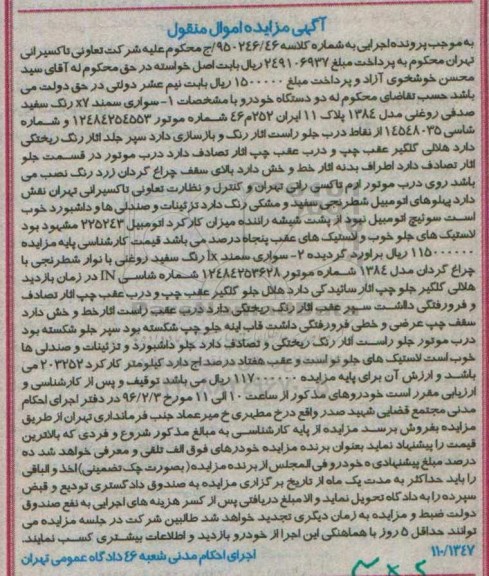 آگهی مزایده اموال منقول
به موجب پرونده اجرایی به شماره کلاسه ۹۵۰۲۴۶/۴۶/ج محکوم علیه شرکت تعاونی تاکسیرانی
تهران محکوم به پرداخت مبلغ ۲۴۹۱۰۶۹۳۷ ریال بابت اصل خواسته در حق محکوم له آقای سید
محسن خوشخوی آزاد و پرداخت مبلغ ۱۵۰۰۰۰۰ ریال بابت نیم عشر دولتی در حق دولت می
باشد حسب تقاضای محکوم له دو دستگاه خودرو با مشخصات ۱- سواری سمند x۷ رنگ سفید
صدفی روغنی مدل ۱۳۸۴ پلاک ۱۱ ایران ۲۵۲م۴۶ شماره موتور ۱۲۴۸۴۲۵۴۵۵۳ و شماره
شاسی ۱۴۵۴۸۰۳۵ از نقاط درب جلو راست آثار رنگ و بازسازی دارد سپر جلد آثار رنگ ریختگی
دارد هلالی گلگیر عقب چپ و درب عقب چپ آثار تصادف دارد درب موتور در قسمت جلو
آثار تصادف دارد اطراف بدنه آثار خط و خش دارد بالای سقف چراغ گردان زرد رنگ نصب می
باشد روی درب موتور آرم تاکسی رانی تهران و کنترل و نظارت تعاونی تاکسیرانی تهران نقش
دارد پهلوهای اتومبیل شطرنجی سفید و مشکی رنگ دارد تزئینات و صندلی ها و داشبورد خوب
است سوئیچ اتومبیل نبود از پشت شیشه راننده میزان کارکرد اتومبیل ۲۲۵۲۴۳ مشهود بود
لاستیک های جلو خوب و لاستیک های عقب پنجاه درصد می باشد قیمت کارشناسی پایه مزایده
۱۱۵۰۰۰۰۰۰ ریال برآورد گردیده ۲- سواری سمند lx رنگ سفید روغنی با نوار شطرنجی با
چراغ گردان مدل ۱۳۸۴ شماره موتور ۱۲۴۸۴۲۵۳۶۲۸ شماره شاسی IN در زمان بازدید
هلالی گلگیر جلو چپ آثار سائیدگی دارد هلال جلو گلگیر عقب چپ و درب عقب چپ آثار تصادف
و فرورفتگی داشت سپر عقب آثار رنگ ریختگی دارد درب عقب راست آثار خط و خش دارد
سقف چپ عرضی و خطی فرورفتگی داشت قاب آینه جلو چپ شکسته بود سپر جلو شکسته بود
درب موتور جلو راست آثار رنگ ریختگی و تصادف دارد جلو داشبورد و تزئینات و صندلی ها
خوب است لاستیک های جلو نو است و عقب هفتاد درصد آج دارد کیلومتر کارکرد ۲۰۳۲۵۲ می
باشد و ارزش آن برای پایه مزایده ۱۱۷۰۰۰۰۰۰ ریال می باشد توقیف و پس از کارشناسی و
ارزیابی مقرر است خودروهای مذکور از ساعت ۱۰ الی ۱۱ مورخ ۹۶/۲/۳ در دفتر اجرای احکام
مدنی مجتمع قضایی شهید صدر واقع در خ مطهری خ میرعماد جنب فرمانداری تهران از طریق
مزایده بفروش برسد مزایده از پایه کارشناسی به مبالغ مذکور شروع و فردی که بالاترین
قیمت را پیشنهاد نماید بعنوان برنده مزایده خودروهای فوق الف تلقی و معرفی خواهد شد ده
درصد مبلغ پیشنهادی ه خودرو فی المجلس از برنده مزایده (بصورت چک تضمینی) اخذ و الباقی
را باید حداکثر به مدت یک ماه از تاریخ برگزاری مزایده به صندوق دادگستری تودیع و قبض
سپرده را به دادگاه تحویل نماید و الا مبلغ دریافتی پس از کسر هزینه های اجرایی به نفع صندوق
دولت ضبط و مزایده به زمان دیگری تجدید خواهد شد طالبین شرکت در جلسه مزایده می
توانند حداقل ۵ روز با هماهنگی این اجرا از خودرو بازدید و اطلاعات بیشتری کسب نمایند.
۱۱۰/۱۳۴۷ اجرای احکام مدنی شعبه ۴۶ دادگاه عمومی تهران